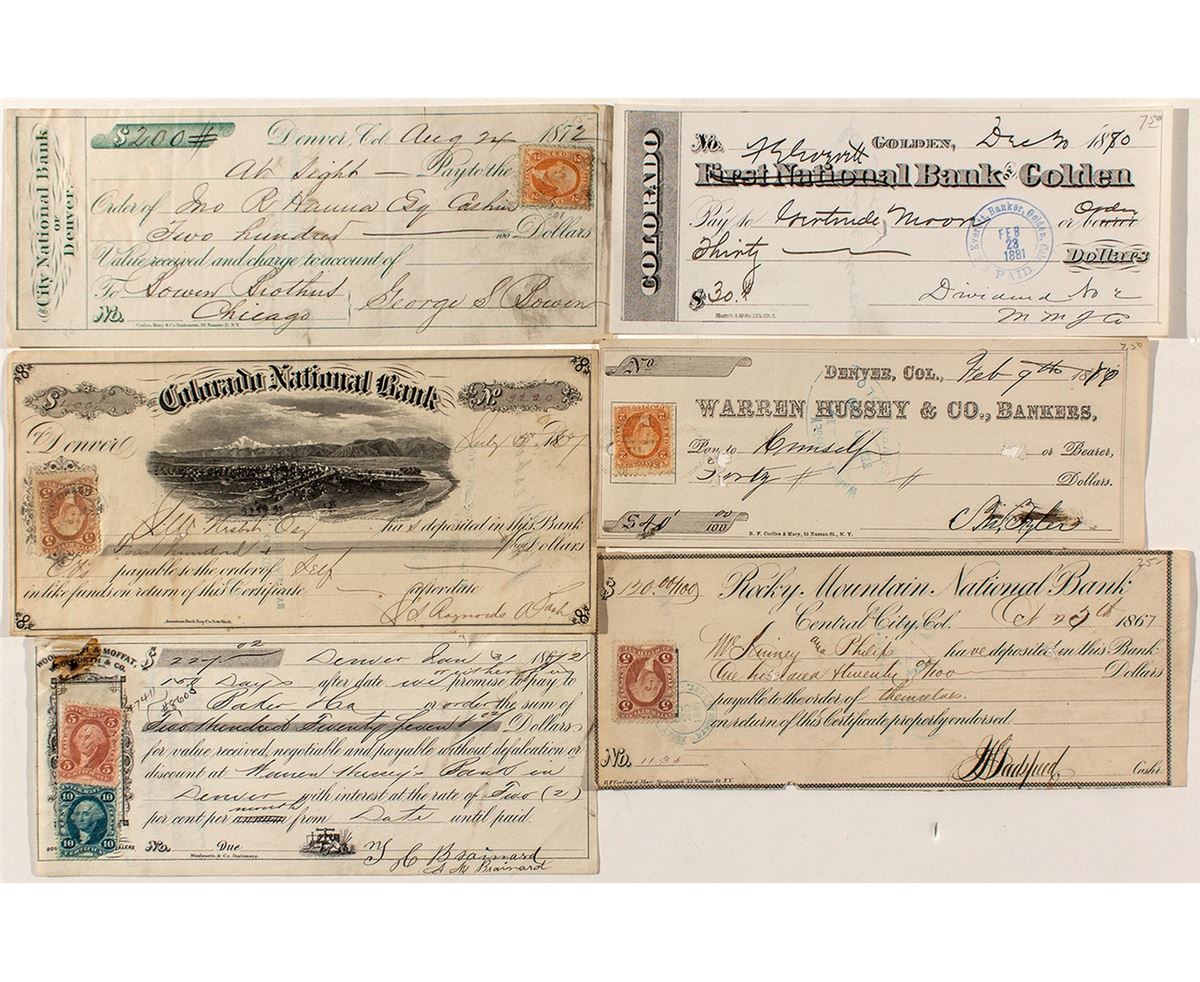 City National Bank
OF
Denver.
$200#
Denver, Col. Aug 24 1872
At Sight — Pay to the
Order of Jno R Hanna Esq Cashier
Two hundred 00/100 Dollars
Value received and charge to account of
To Bowen Brothers
Chicago
George S Bowen
No.
Corlies, Macy & Co. Stationers, 39 Nassau St. N.Y.
750
COLORADO
No. GOLDEN, Dec 20 1880
First National Bank OF Golden
Pay to Gertrude Moon or bearer Order
Thirty — Dollars
$30.
Dividend No 2
M M J Co
F. E. Everett, Banker, Golden, Colo.
FEB
23
1881
PAID
Colorado National Bank
$
No. 3220
Denver July 1867
Esq has deposited in this Bank
Four hundred & Dollars
payable to the order of Self
in like funds on return of this Certificate after date
American Bank Note Co. New York.
No
DENVER, COL., Feb 9th 18
WARREN HUSSEY & CO., BANKERS,
Pay to himself or Bearer,
Forty # # Dollars.
$40 00/100
C M Tyler
B. F. Corlies & Macy, 33 Nassau St., N. Y.
$120.00/100
Rocky Mountain National Bank
Central City, Col. 1867
McKinney and Philips have deposited in this Bank
One hundred & twenty 00/100 Dollars
payable to the order of themselves
on return of this Certificate properly endorsed.
No. 1135
Cashr
B.F. Corlies & Macy, Stationers, 33 Nassau St. N.Y.
WOOLWORTH & MOFFAT,
WOOLWORTH & CO.
$227.02 Denver Jan 3 1872
150 Days after date we promise to pay to
or order the sum of
Two Hundred Twenty Seven & 02 Dollars
for value received, negotiable and payable without defalcation or
discount at Warren Hussey's Bank in
Denver with interest at the rate of Two (2)
per cent per annum month from Date until paid.
No. Due
Woolworth & Co. Stationers.
H C Brainard
A M Brainard
5 5
10 10
10 10